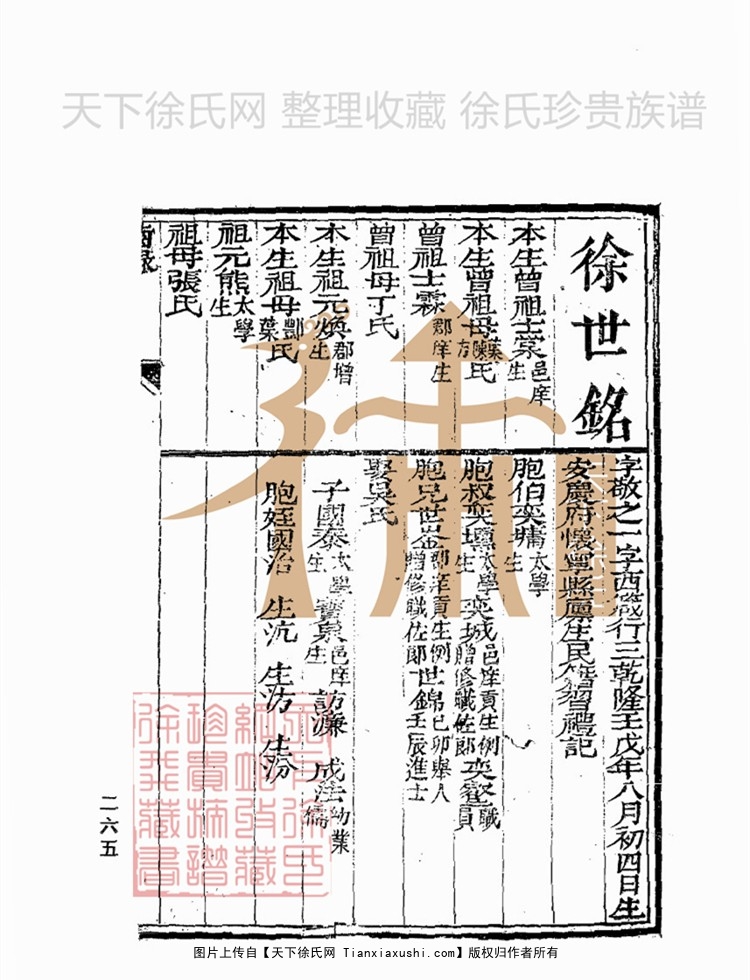 天下徐氏网 整理收藏 徐氏珍贵族谱
徐世銘
字敬之一字西箴行三乾隆壬戌年八月初四日生
安慶府懷寧縣廩生民籍習禮記
本生曾祖士棠邑庠生
本生曾祖母氏
曾祖士霖郡庠生
曾祖母丁氏
本生祖元煥郡增生
本生祖母鄭葉氏
祖元熊太學生
祖母張氏
胞伯奕墉太學生
胞叔奕壎太學生 奕城邑庠貢生例贈修職佐郎 奕 職員
胞兄世崟郡庠貢生例贈修職佐郎 世錦己卯舉人 世 壬辰進士
娶吳氏
子國泰太學生 寶泉邑庠生 訪濂 成法幼業儒
胞姪國治 生沆 生汸 生汾
二六五
图片上传自【天下徐氏网 Tianxiaxushi.com】版权归作者所有